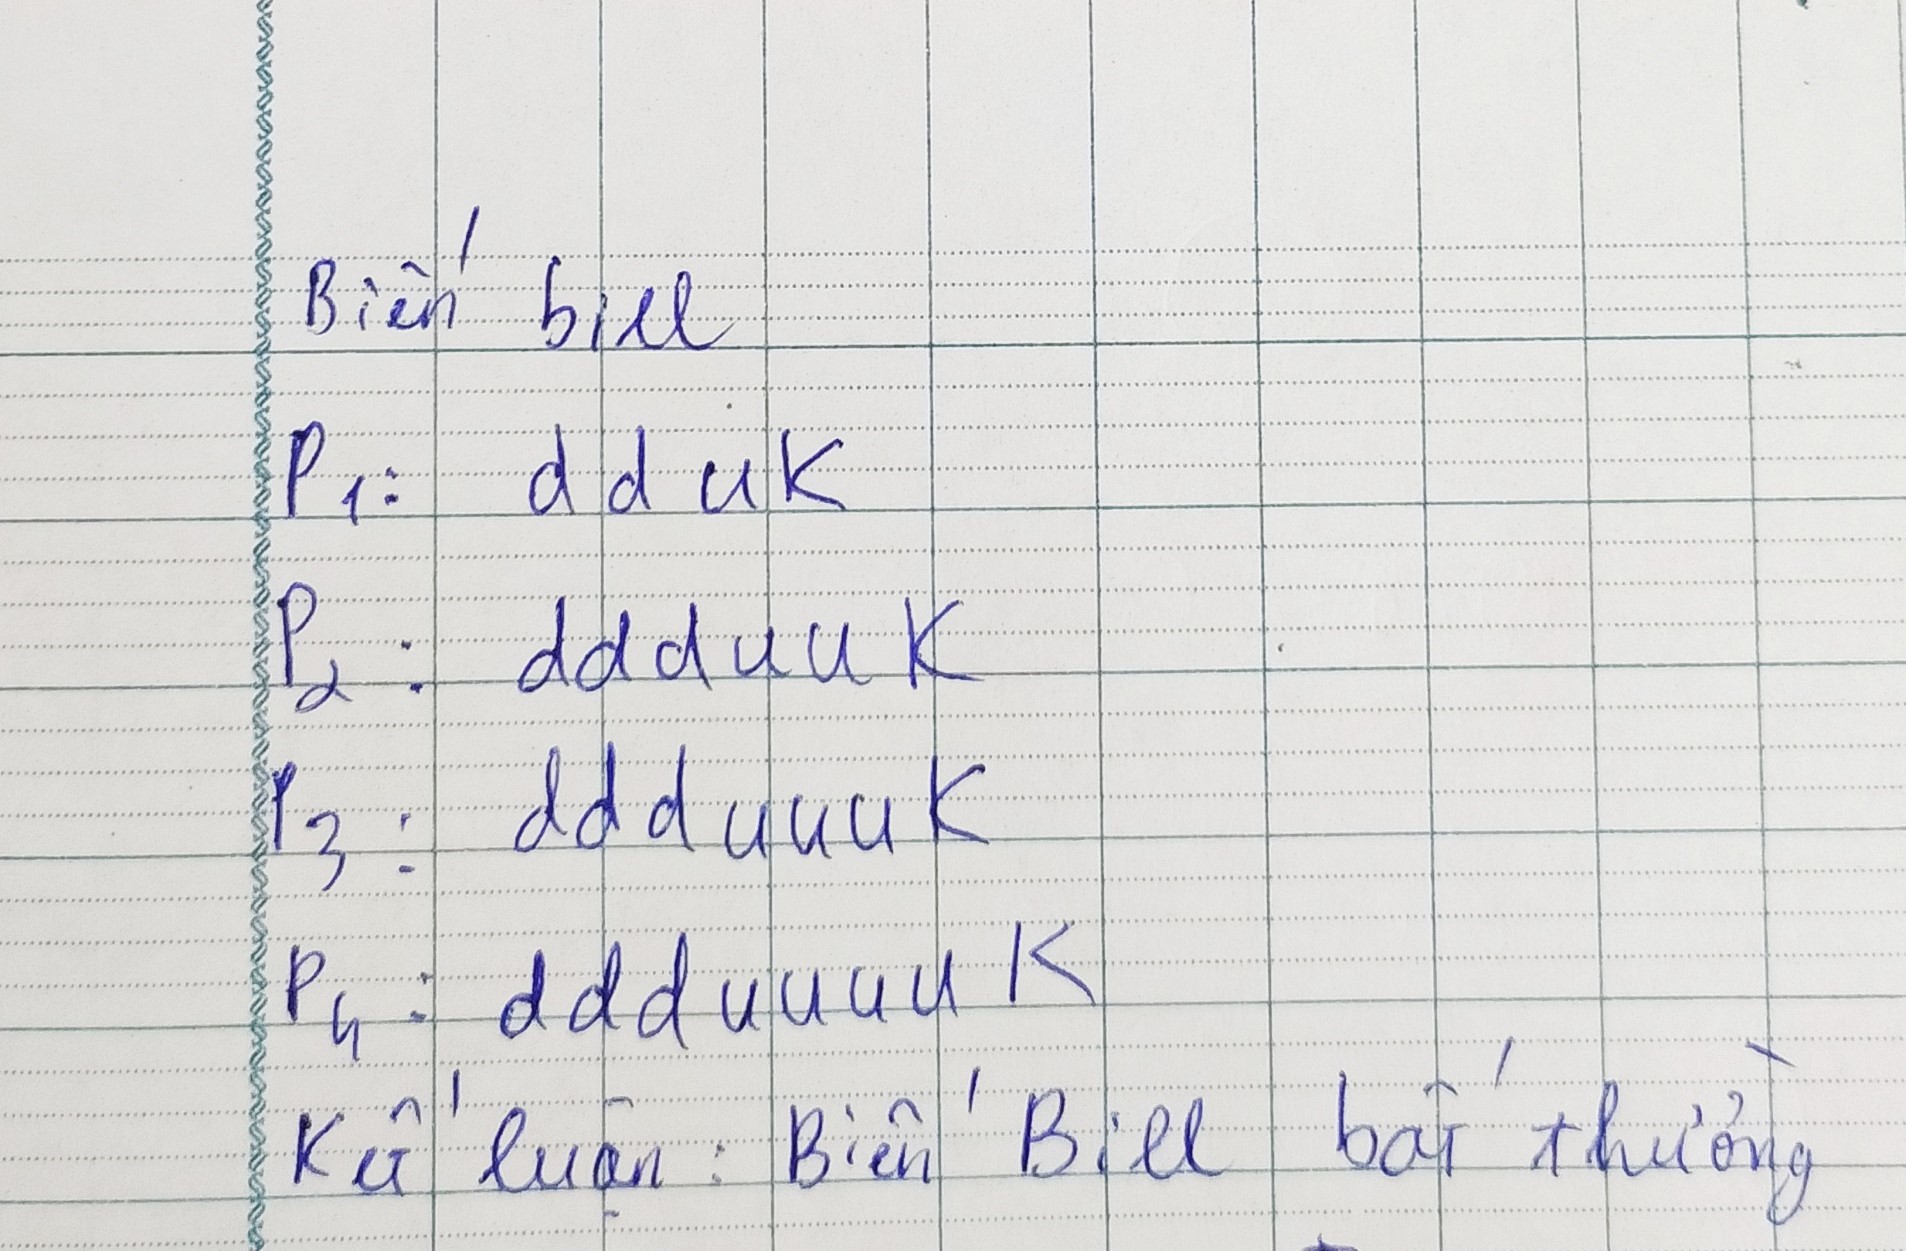 Biến bill
P1: dduK
P2: ddduuK
P3: ddduuuK
P4: ddduuuuK
Kết luận: Biến Bill bất thường